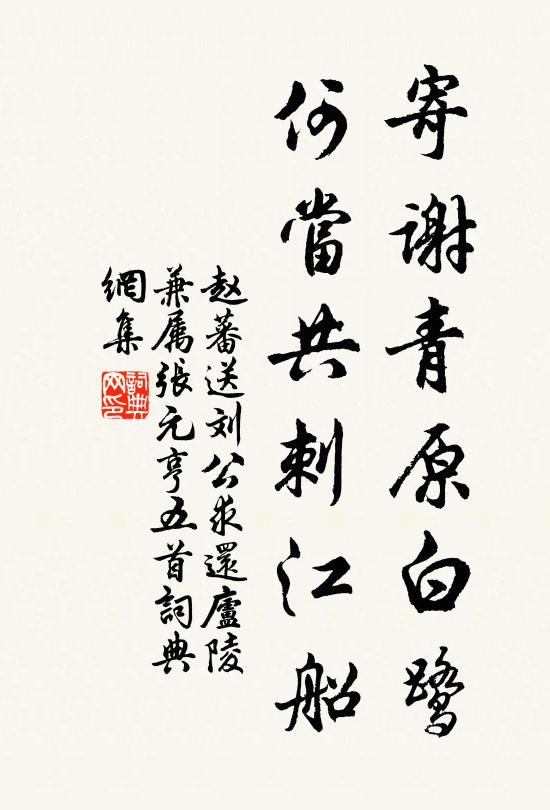 寄謝青原白鷺
何當共刺江船
赵蕃送刘公求還廬陵
兼属張元亨五首詞典
網集
詞典
网印